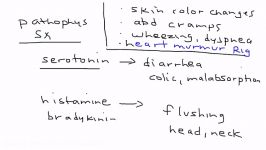 · skin color changes
· abd cramps
· wheezing, dyspnea
· heart murmur Rig
pathophys
Sx
serotonin → diarrhea
colic, malabsorption
histamine → flushing
bradykinin
head, neck